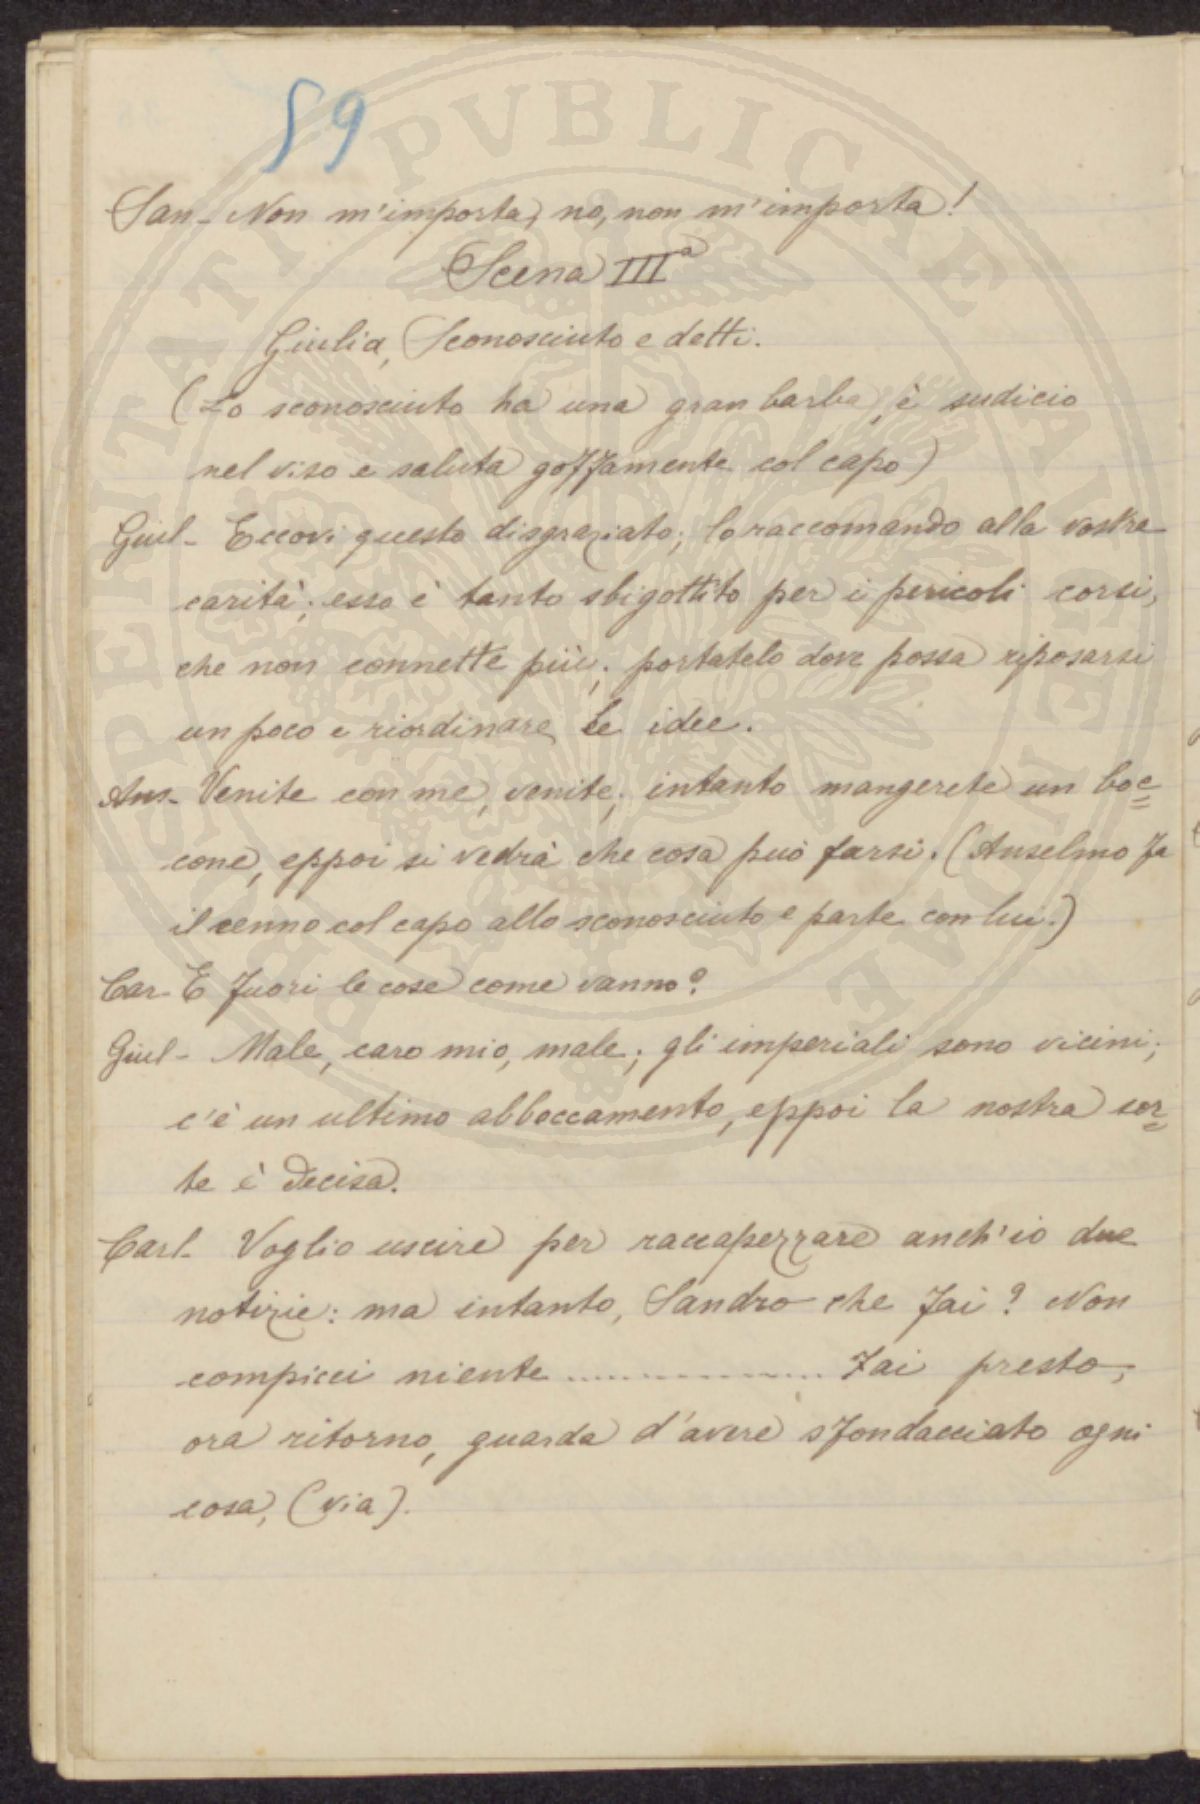 59
San- Non m'importa, no, non m'importa!
Scena IIIª
Giulia, Sconosciuto e detti.
(Lo sconosciuto ha una gran barba, è sudicio
nel viso e saluta goffamente col capo)
Giul- Eccovi questo disgraziato; lo raccomando alla vostra
carità; esso è tanto sbigottito per i pericoli corsi,
che non connette più; portatelo dove possa riposarsi
un poco e riordinare le idee.
Ans- Venite con me, venite; intanto mangerete un boc=
cone, eppoi si vedrà che cosa può farsi. (Anselmo fa
il cenno col capo allo sconosciuto e parte con lui.)
Car- E fuori le cose come vanno?
Giul- Male, caro mio, male; gli imperiali sono vicini;
c'è un ultimo abboccamento, eppoi la nostra sor=
te è decisa.
Carl- Voglio uscire per raccapezzare anch'io due
notizie: ma intanto, Sandro che fai? Non
compicci niente .............. fai presto,
ora ritorno, guarda d'avere sfondacciato ogni
cosa, (via).
PROSPERITATI PVBLICAE AVGENDAE